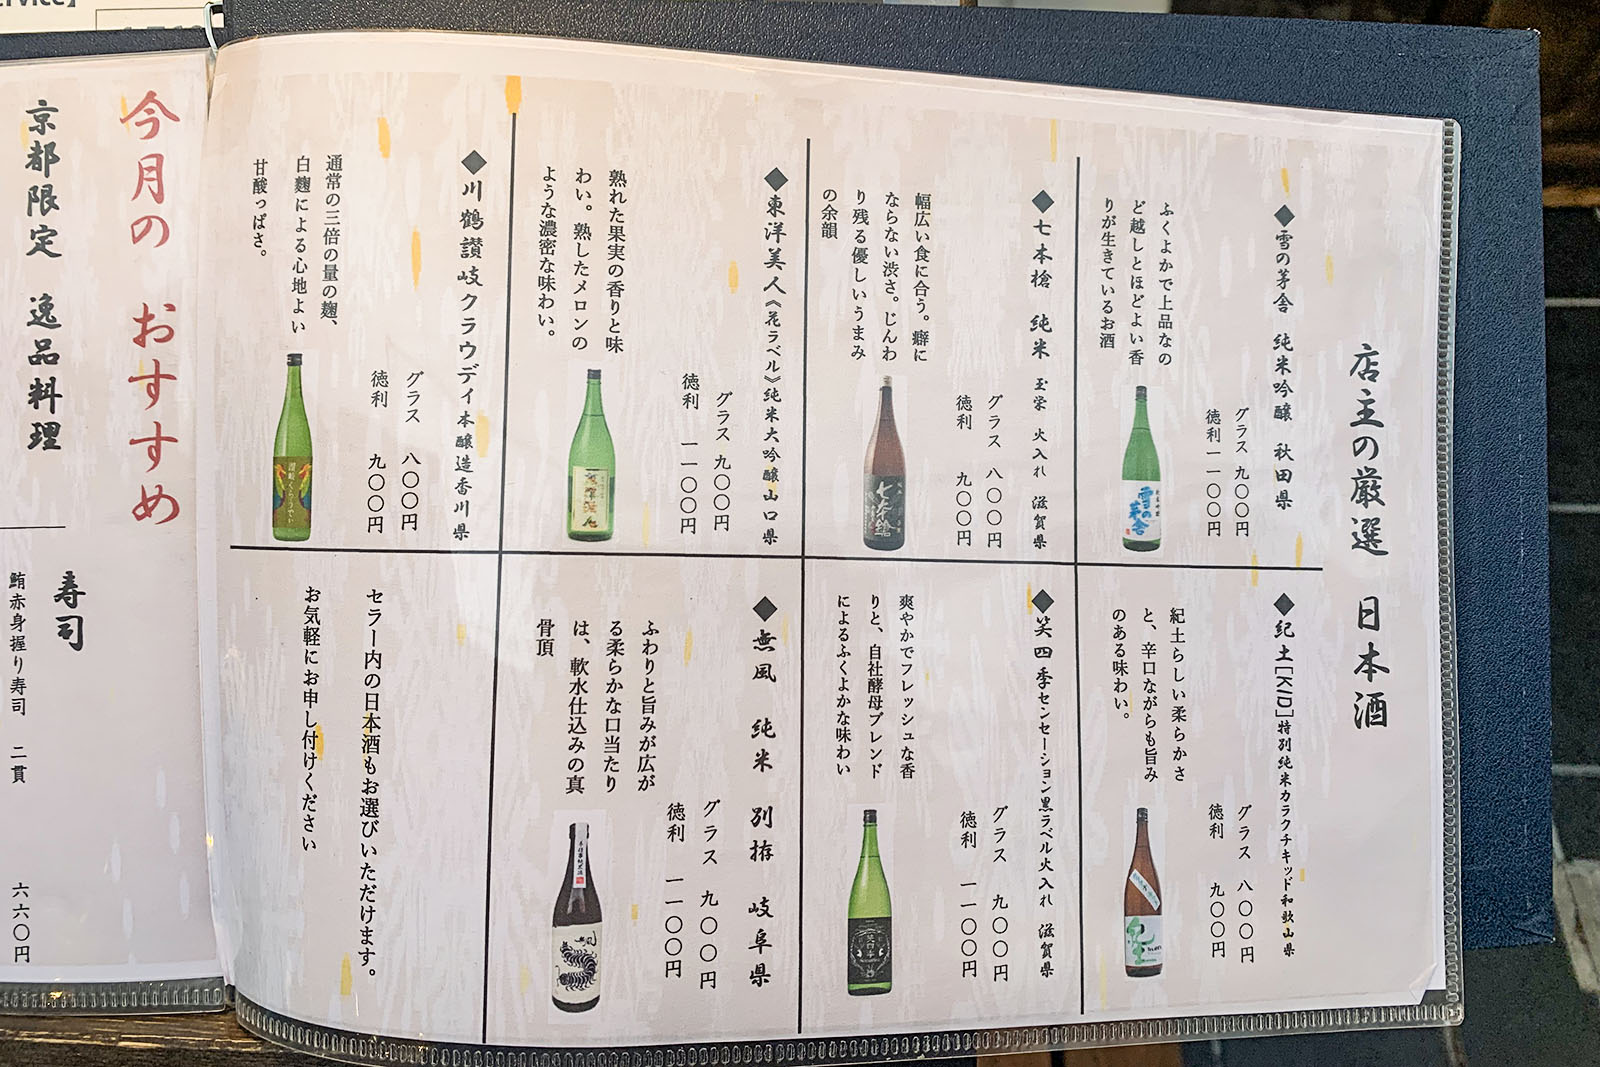 ervice】
店主の厳選 日本酒
◆雪の茅舎 純米吟醸 秋田県
ふくよかで上品なの
ど越しとほどよい香
りが生きているお酒
グラス 九〇〇円
徳利 一一〇〇円
雪の茅舎
◆紀土[KID]特別純米カラクチキッド和歌山県
紀土らしい柔らかさ
と、辛口ながらも旨み
のある味わい。
グラス 八〇〇円
徳利 九〇〇円
紀土
◆七本槍 純米 玉栄 火入れ 滋賀県
幅広い食に合う。癖に
ならない渋さ。じんわ
り残る優しいうまみ
の余韻
グラス 八〇〇円
徳利 九〇〇円
七本鎗
◆笑四季センセーション黒ラベル火入れ 滋賀県
爽やかでフレッシュな香
りと、自社酵母ブレンド
によるふくよかな味わい
グラス 九〇〇円
徳利 一一〇〇円
笑四季
◆東洋美人《花ラベル》純米大吟醸山口県
熟れた果実の香りと味
わい。熟したメロンの
ような濃密な味わい。
グラス 九〇〇円
徳利 一一〇〇円
東洋美人
◆無風 純米 別拵 岐阜県
ふわりと旨みが広が
る柔らかな口当たり
は、軟水仕込みの真
骨頂
グラス 九〇〇円
徳利 一一〇〇円
◆川鶴讃岐クラウディ本醸造香川県
通常の三倍の量の麹、
白麹による心地よい
甘酸っぱさ。
グラス 八〇〇円
徳利 九〇〇円
讃岐くらうでぃ
セラー内の日本酒もお選びいただけます。
お気軽にお申し付けください
今月の おすすめ
京都限定 逸品料理
寿司
鮪赤身握り寿司 二貫 六六〇円